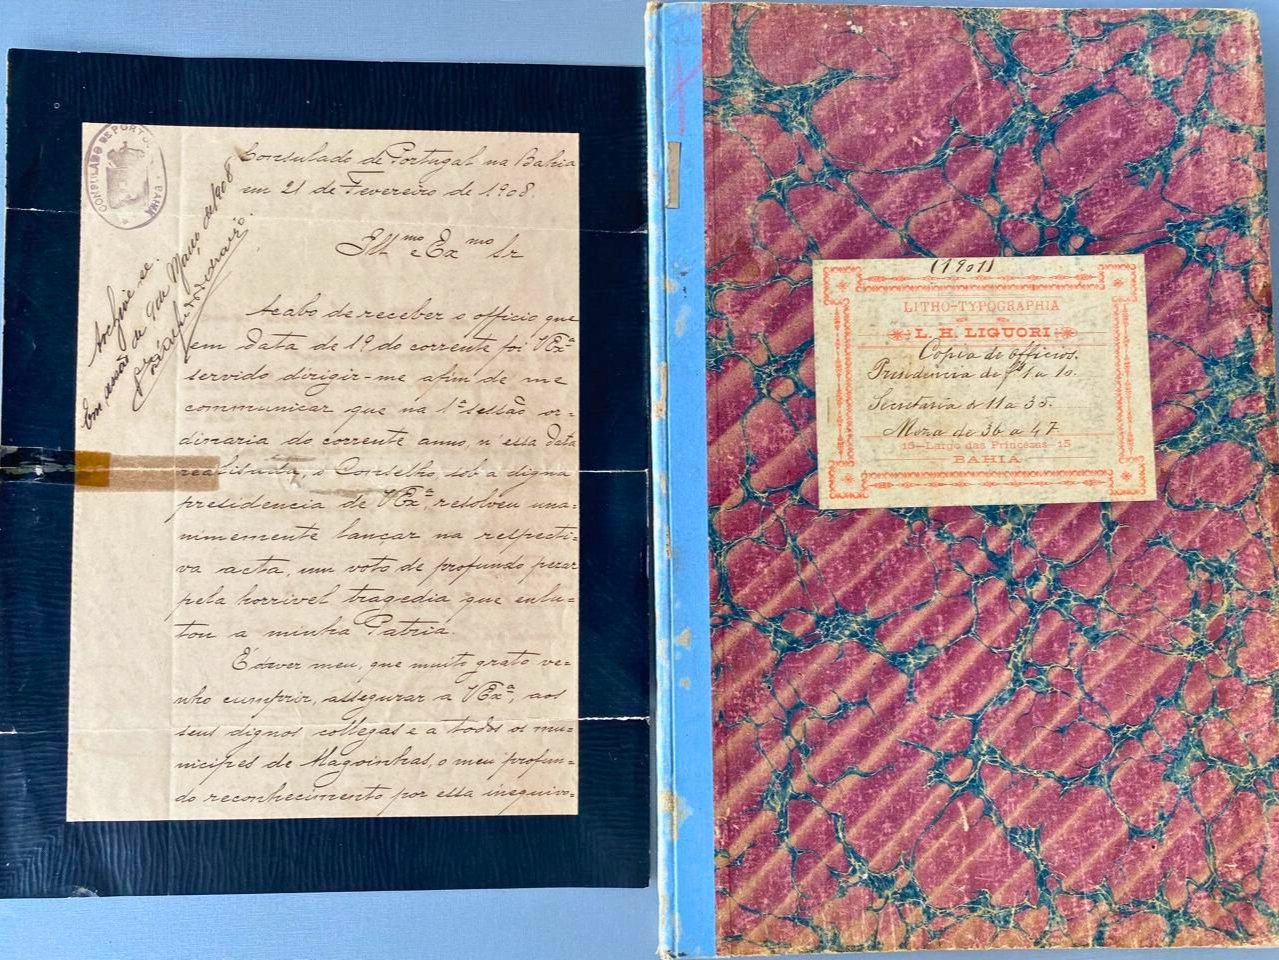 CONSULADO DE PORTUGAL BAHIA
Archive-se.
Em sessão de 9 de Março de 1908
Consulado de Portugal na Bahia
em 21 de Fevereiro de 1908
Illmo e Exmo Sr
Acabo de receber o officio que
em data de 19 do corrente foi VExª
servido dirigir-me afim de me
communicar que na 1ª sessão or=
dinaria do corrente anno, n'essa data
realisada, o Conselho, sob a digna
presidencia de VExª, resolveu una=
nimemente lançar na respecti=
va acta, um voto de profundo pezar
pela horrivel tragedia que enlu=
tou a minha Patria.
É dever meu, que muito grato ve=
nho cumprir, assegurar a VExª, aos
seus dignos collegas e a todos os mu=
nicipes de Alagoinhas, o meu profun=
do reconhecimento por essa inequivo=
(1901)
LITHO-TYPOGRAPHIA
L. H. LIGUORI
Copia de officios.
Presidencia de fs 1 a 10.
Secretaria de 11 a 35.
Meza de 36 a 47
15-Largo das Princezas-15
BAHIA